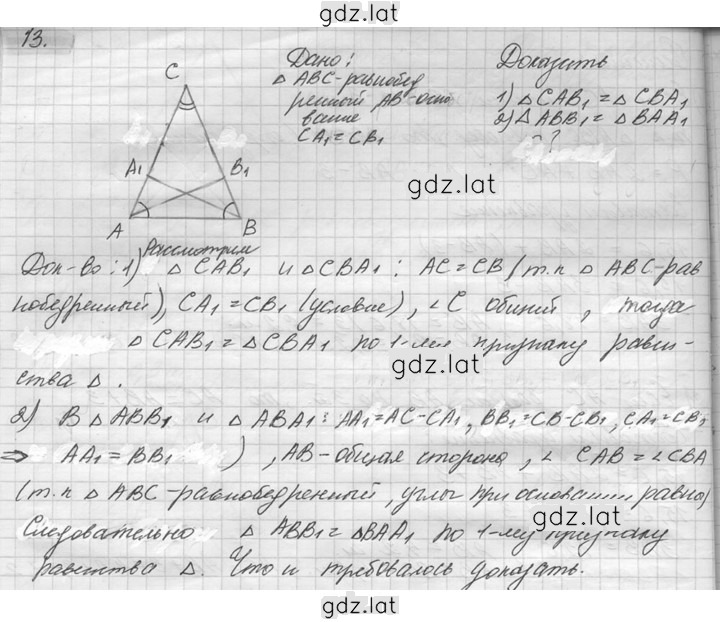 gdz.lat
13.
C
A1
B1
A
B
Дано:
△ ABC-равнобед
ренный AB-осно
вание
CA1=CB1
Доказать
1) △ CAB1 = △ CBA1
2) △ ABB1 = △ BAA1
gdz.lat
Рассмотрим
Док-во: 1) △ CAB1 и △ CBA1: AC=CB (т.к △ ABC-рав
нобедренный), CA1=CB1 (условие), ∠C общий, тогда
△ CAB1 = △ CBA1 по 1-му признаку равен-
gdz.lat
ства △.
2) В △ ABB1 и △ ABA1: AA1=AC-CA1, BB1=CB-CB1, CA1=CB1
⇒ AA1=BB1 ), AB-общая сторона, ∠ CAB = ∠CBA
(т.к △ ABC-равнобедренный, углы при основании равны)
gdz.lat
Следовательно △ ABB1 = △BAA1 по 1-му признаку
равенства △. Что и требовалось доказать.
gdz.lat